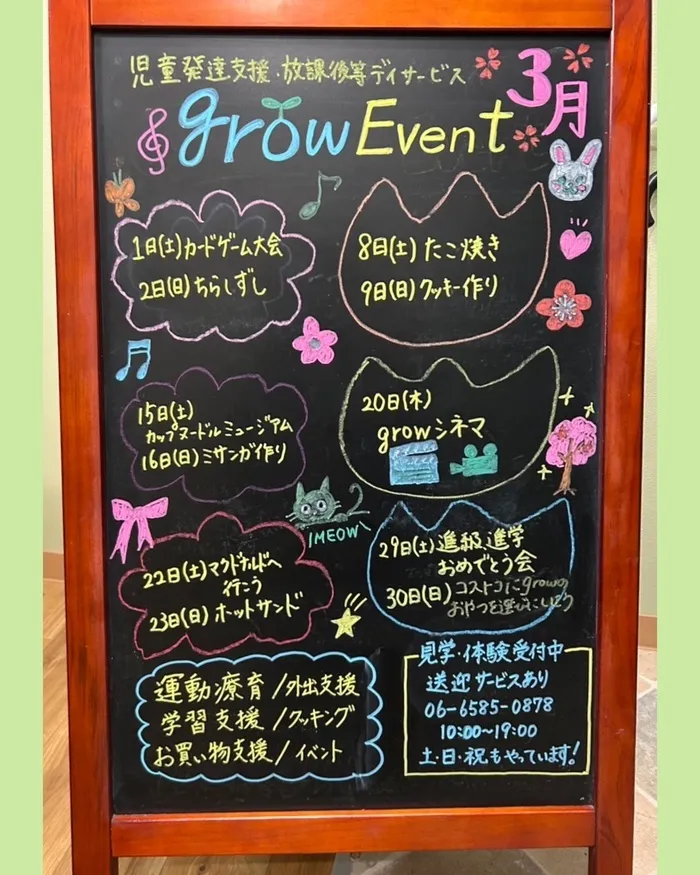 児童発達支援・放課後等デイサービス
3月
grow Event
1日(土)カードゲーム大会
2日(日)ちらしずし
8日(土)たこ焼き
9日(日)クッキー作り
15日(土)
カップヌードルミュージアム
16日(日)ミサンガ作り
20日(木)
growシネマ
MEOW
22日(土)マクドナルドへ
行こう
23日(日)ホットサンド
29日(土)進級進学
おめでとう会
30日(日)コストコにgrowの
おやつを選びにいこう
運動療育/外出支援
学習支援/クッキング
お買い物支援/イベント
見学・体験受付中
送迎サービスあり
06-6585-0878
10:00~19:00
土・日・祝もやっています!